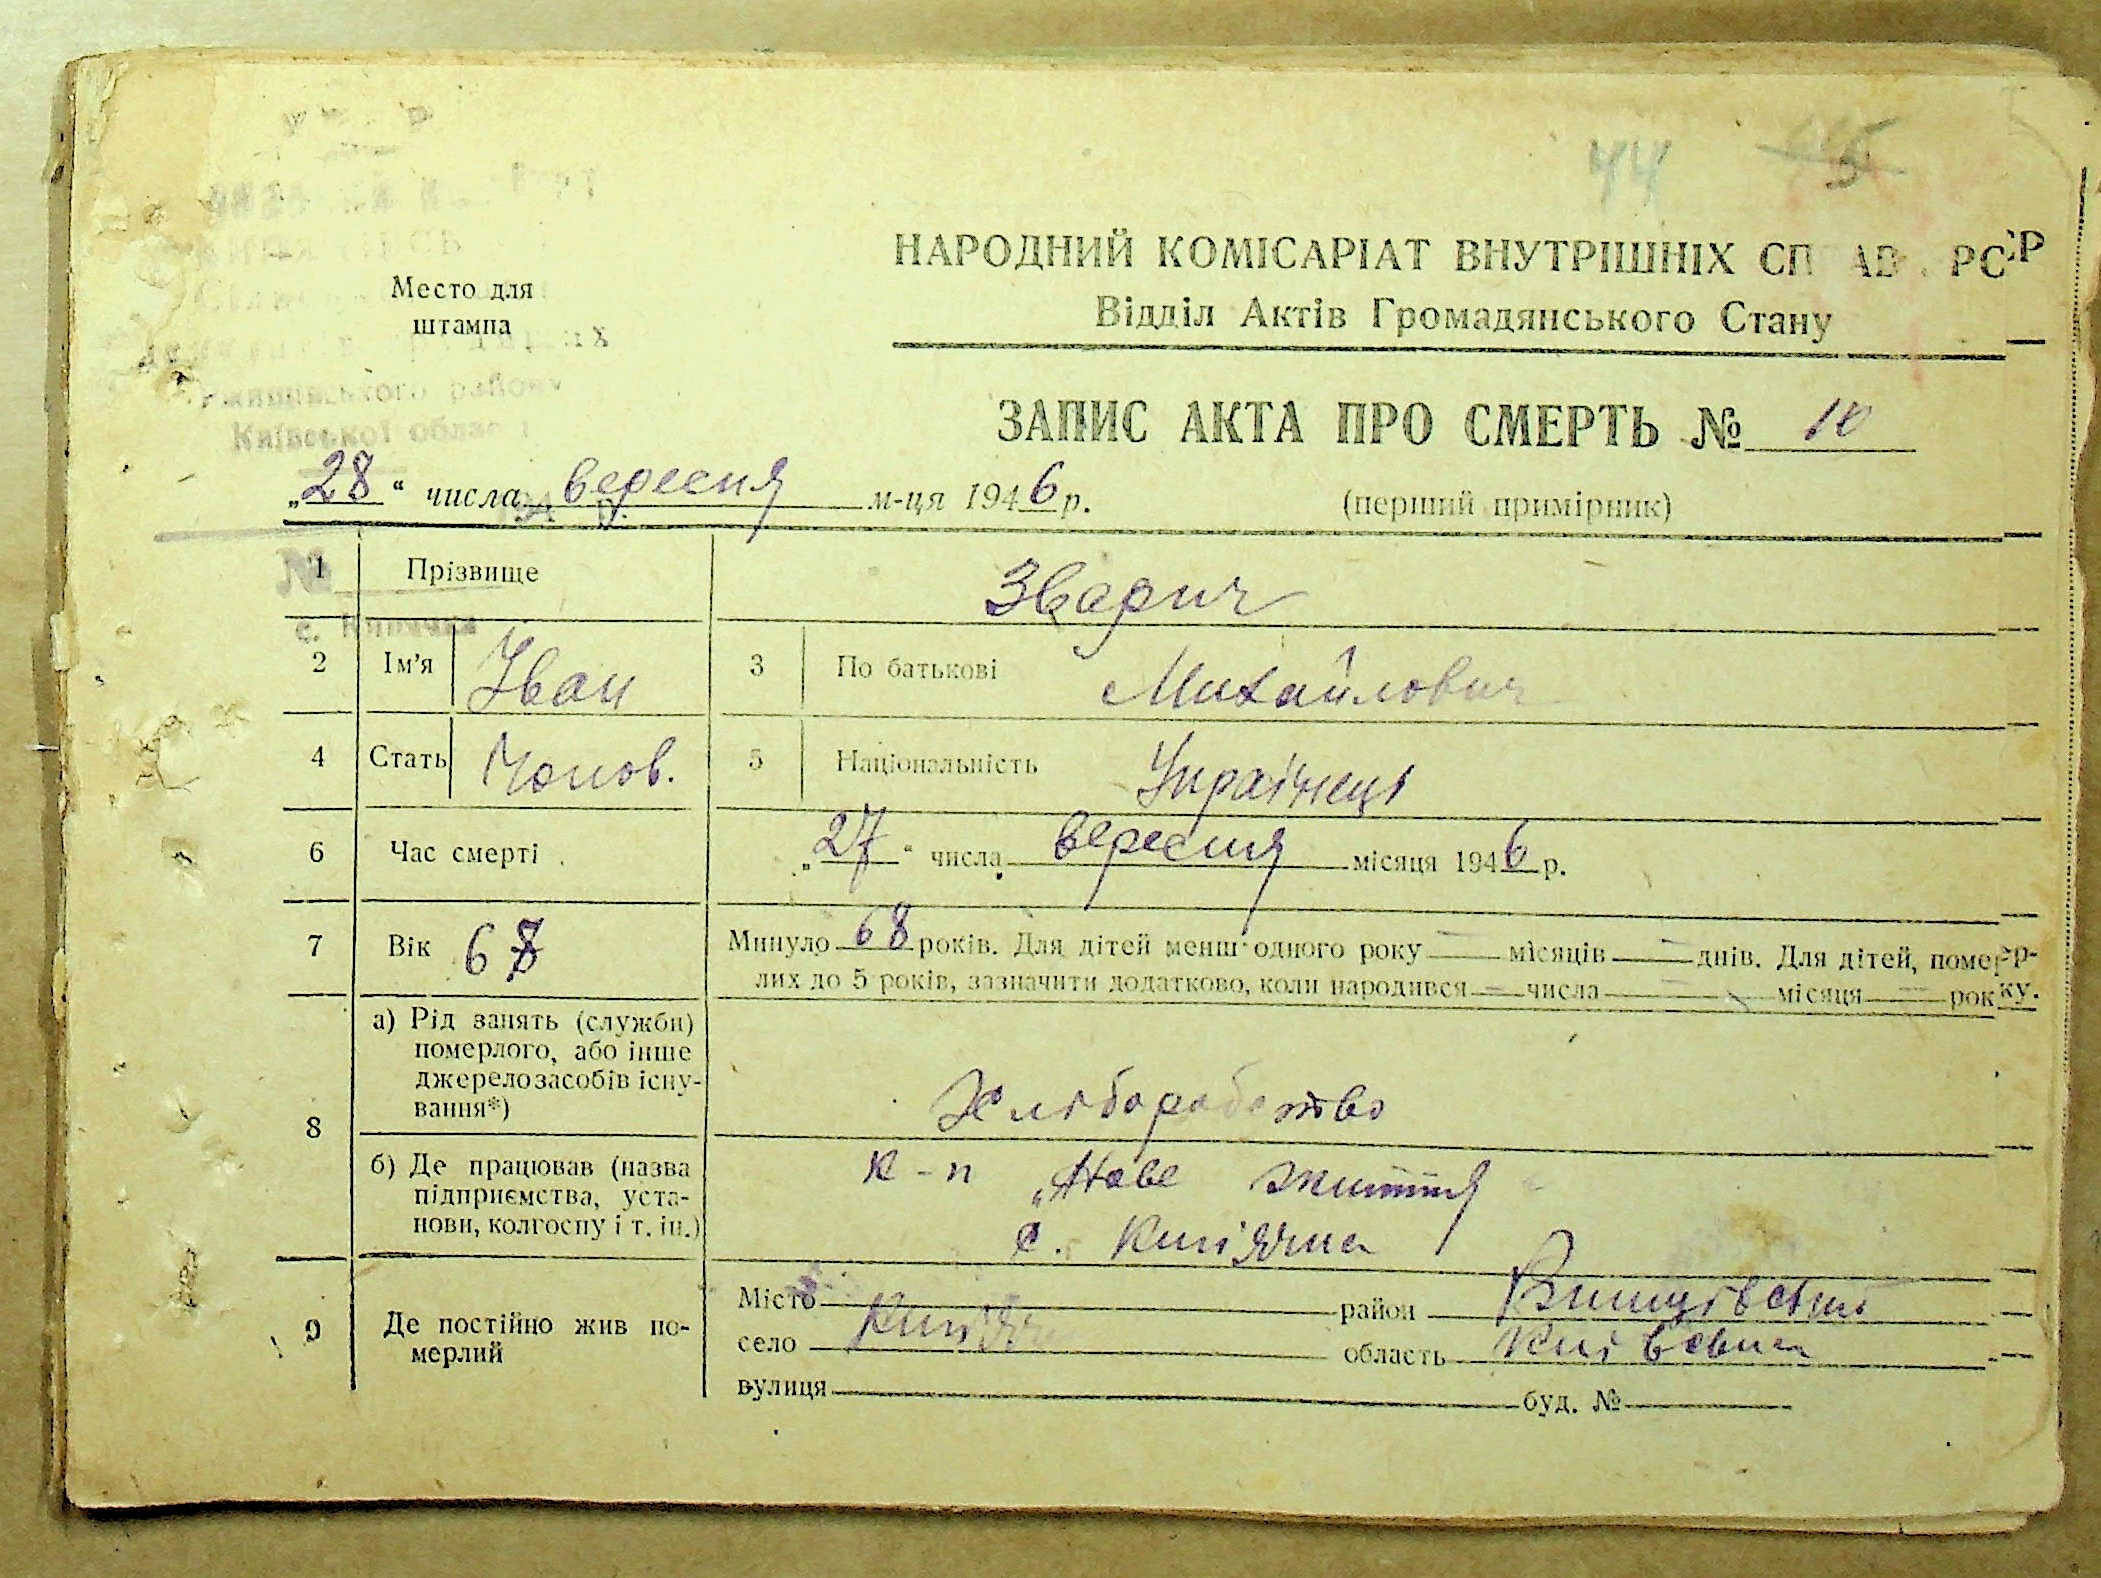 44
НАРОДНИЙ КОМІСАРІАТ ВНУТРІШНІХ СП АВ РСР
Відділ Актів Громадянського Стану
Место для
штампа
району
Київської облас
ЗАПИС АКТА ПРО СМЕРТЬ № 10
„28“ числа вересня м-ця 1946 р. (перший примірник)
№
1 Прізвище Зварич
2 Ім'я Іван 3 По батькові Михайлович
4 Стать Чолов. 5 Національність Українець
6 Час смерті „27“ числа вересня місяця 1946 р.
7 Вік 68 Минуло 68 років. Для дітей менш одного року — місяців — днів. Для дітей, помер-
лих до 5 років, зазначити додатково, коли народився — числа — місяця — року.
8 а) Рід занять (служби)
померлого, або інше
джерело засобів існу-
вання*)
Хлібороботво
б) Де працював (назва
підприємства, уста-
нови, колгоспу і т. ін.)
к-п „Нове життя“
с. Кипіячка
9 Де постійно жив по-
мерлий
Місто район
село область Київська
вулиця буд. №